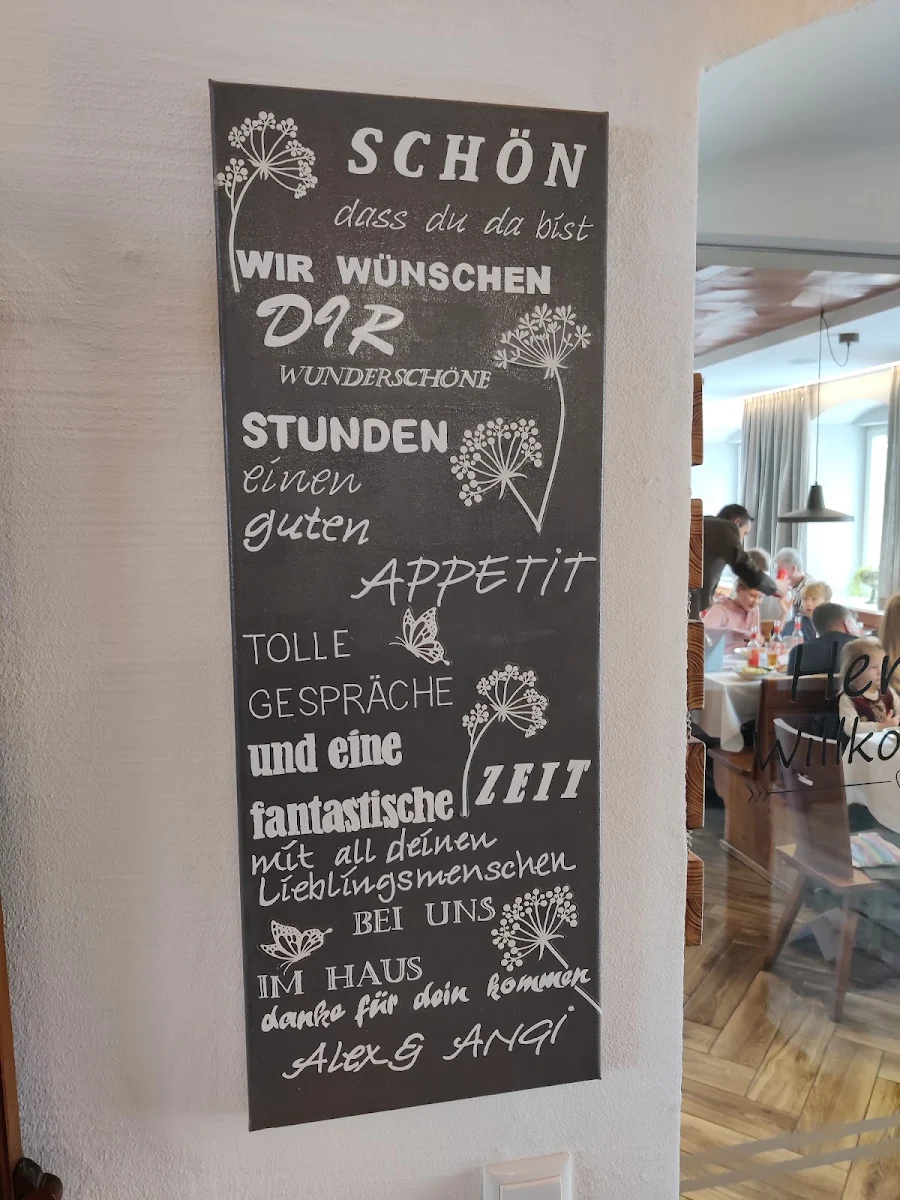 SCHÖN
dass du da bist
WIR WÜNSCHEN
DIR
WUNDERSCHÖNE
STUNDEN
einen
guten
APPETiT
TOLLE
GESPRÄCHE
und eine
fantastische ZEIT
mit all deinen
Lieblingsmenschen
BEI UNS
IM HAUS
danke für dein kommen
Alex & ANGi